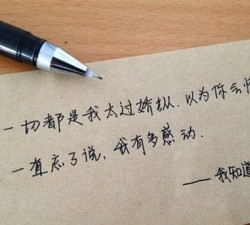 一切都是我太过娇纵.以为你会
一直忘了说,我有多感动.
——我知道